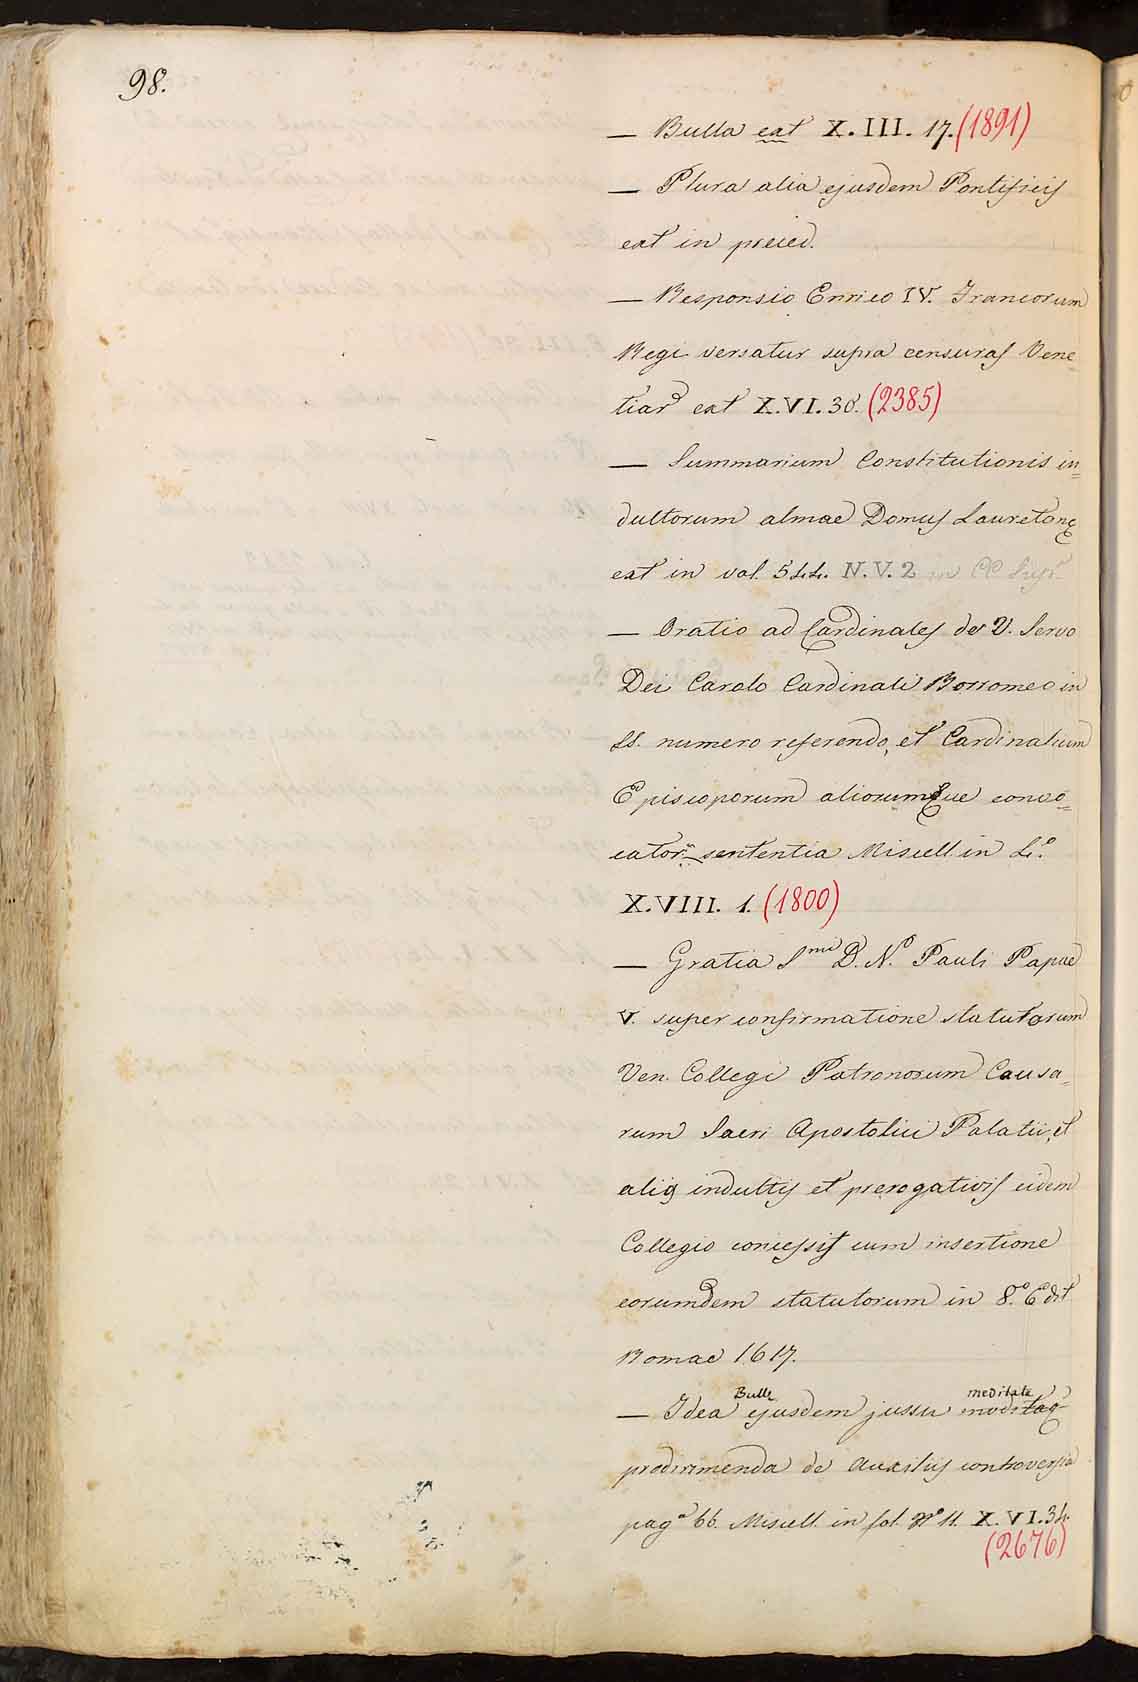 98.
— Bulla eat X. III. 17. (1891)
— Plura alia ejusdem Pontificis
eat in preced.
— Responsio Enrico IV. Francorum
Regi versatur supra censuras Vene
tiar eat X. VI. 30. (2385)
— Summarium Constitutionis in=
dultorum almae Domus Lauretanę
eat in vol. 544. N. V. 2 in
— Oratio ad Cardinales de V. Servo
Dei Carolo Cardinali Borromeo in
SS. numero referendo, et Cardinalium
Episcoporum aliorumque convo=
cator. sententia Miscell. in 4.o
X. VIII. 1. (1800)
— Gratia Smi D. N. Pauli Papae
V. super confirmatione statutorum
Ven. Collegi Patronorum Causa=
rum Sacri Apostolici Palatii, et
aliis indultis et prerogativis eidem
Collegio concessis cum insertione
eorumdem statutorum in 8.o Edit
Romae 1617.
— Idea Bulle ejusdem jussu meditate
prodirimenda de Auxiliis controversia
pag.a 66. Miscell. in fol. No 11. X. VI. 34.
(2676)